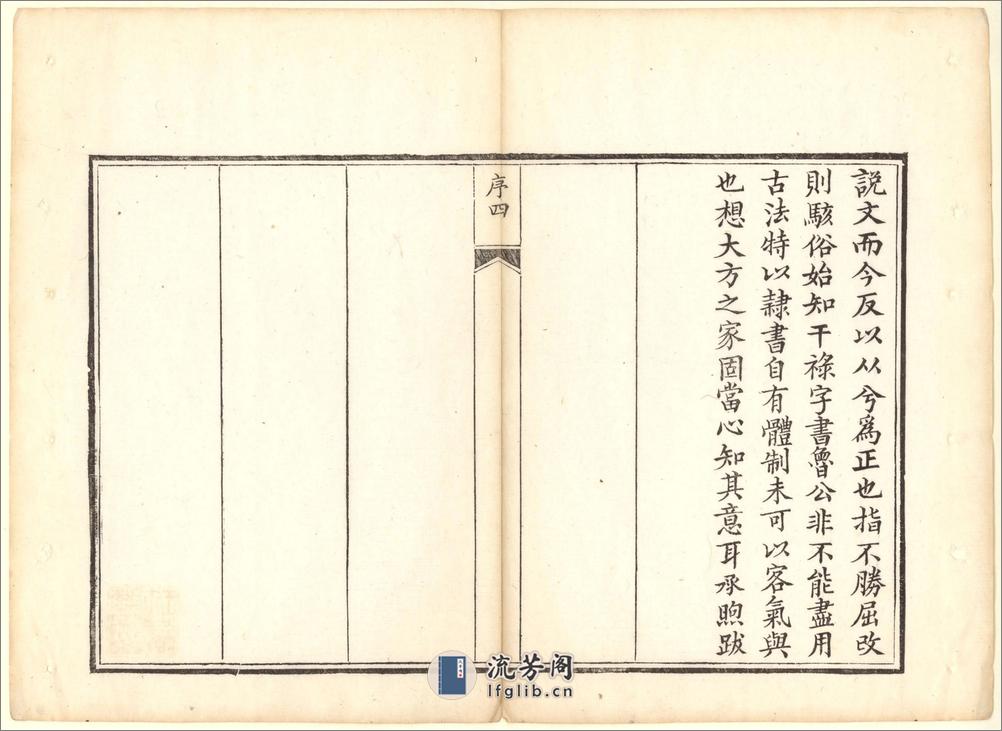 說文而今反以从兮爲正也指不勝屈改
則駭俗始知干祿字書魯公非不能盡用
古法特以隸書自有體制未可以客氣與
也想大方之家固當心知其意耳承煦跋
序四
流芳阁
lfglib.cn